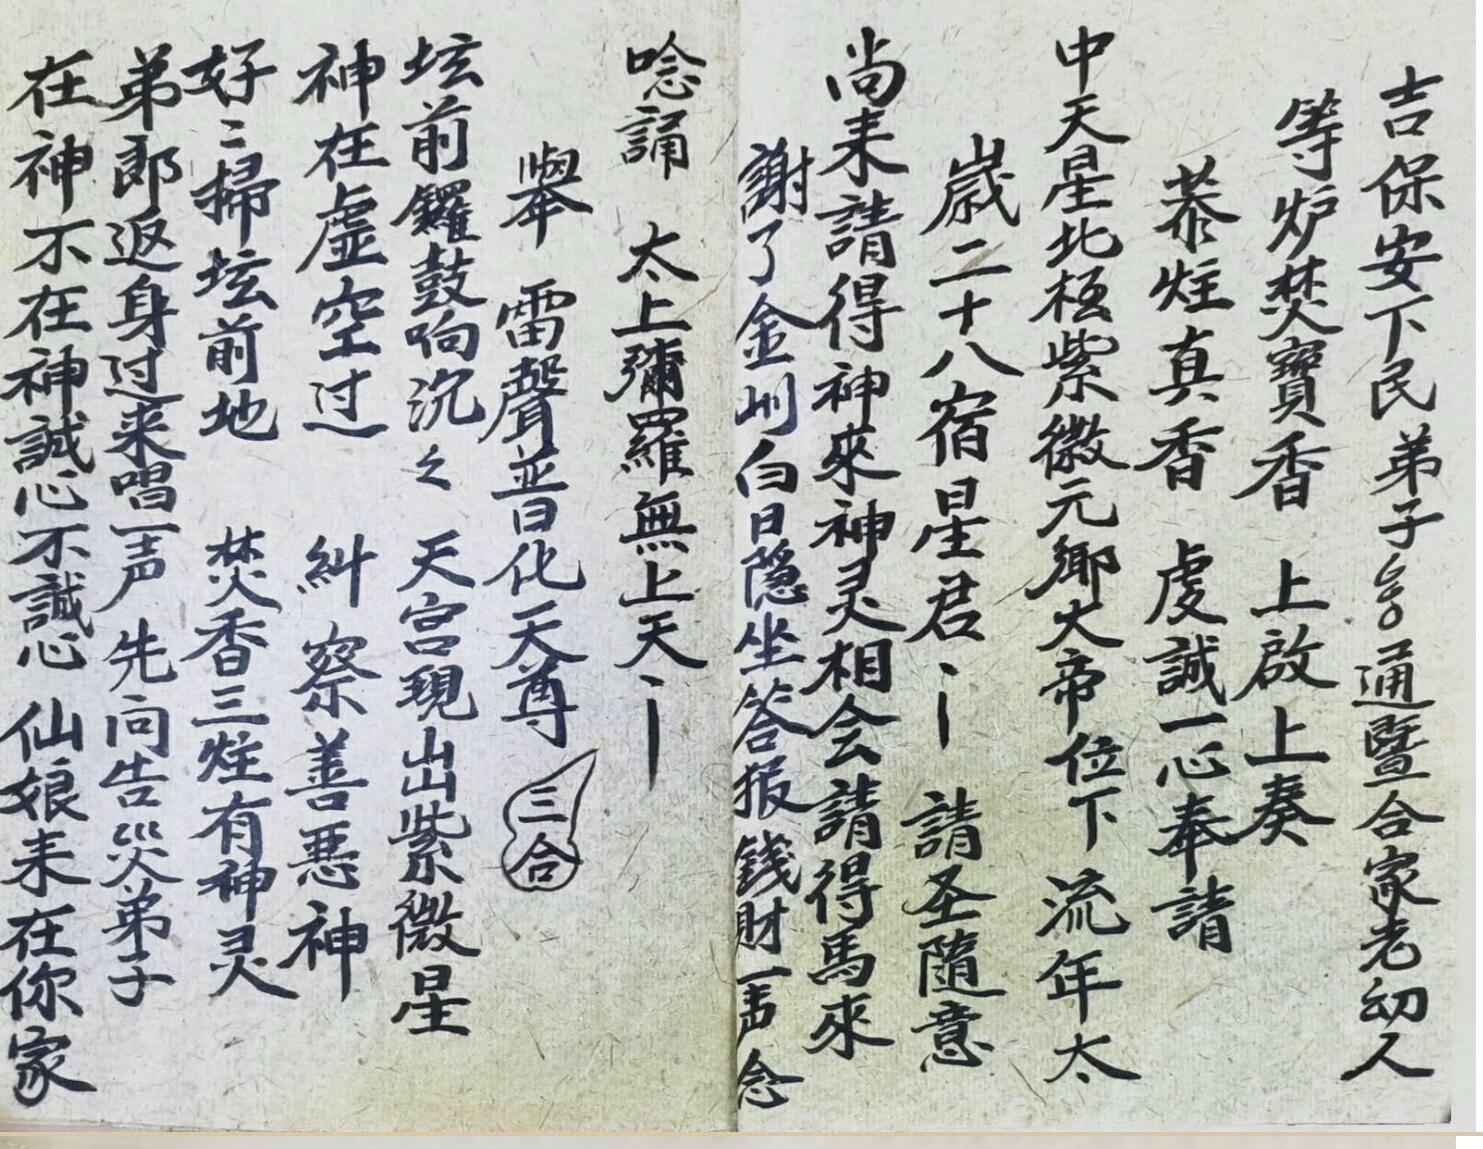 吉保安下民弟子厶通暨合家老幼人
等炉焚寶香 上啟上奏
恭炷真香 虔誠一心奉請
中天星北極紫微元卿大帝位下流年太
歲二十八宿星君 請圣隨意
尚来請得神來神灵相会請得馬來
謝了金圳白日隐坐答报錢財一声念
唸誦 太上彌羅無上天
舉 雷聲普化天尊 三合
坛前鑼鼓响沉々 天宮現出紫微星
神在虚空过 糾察善惡神
好〻掃坛前地 焚香三炷有神灵
弟郎返身过来唱一声 先向告災弟子
在神不在神誠心不誠心 仙娘来在你家